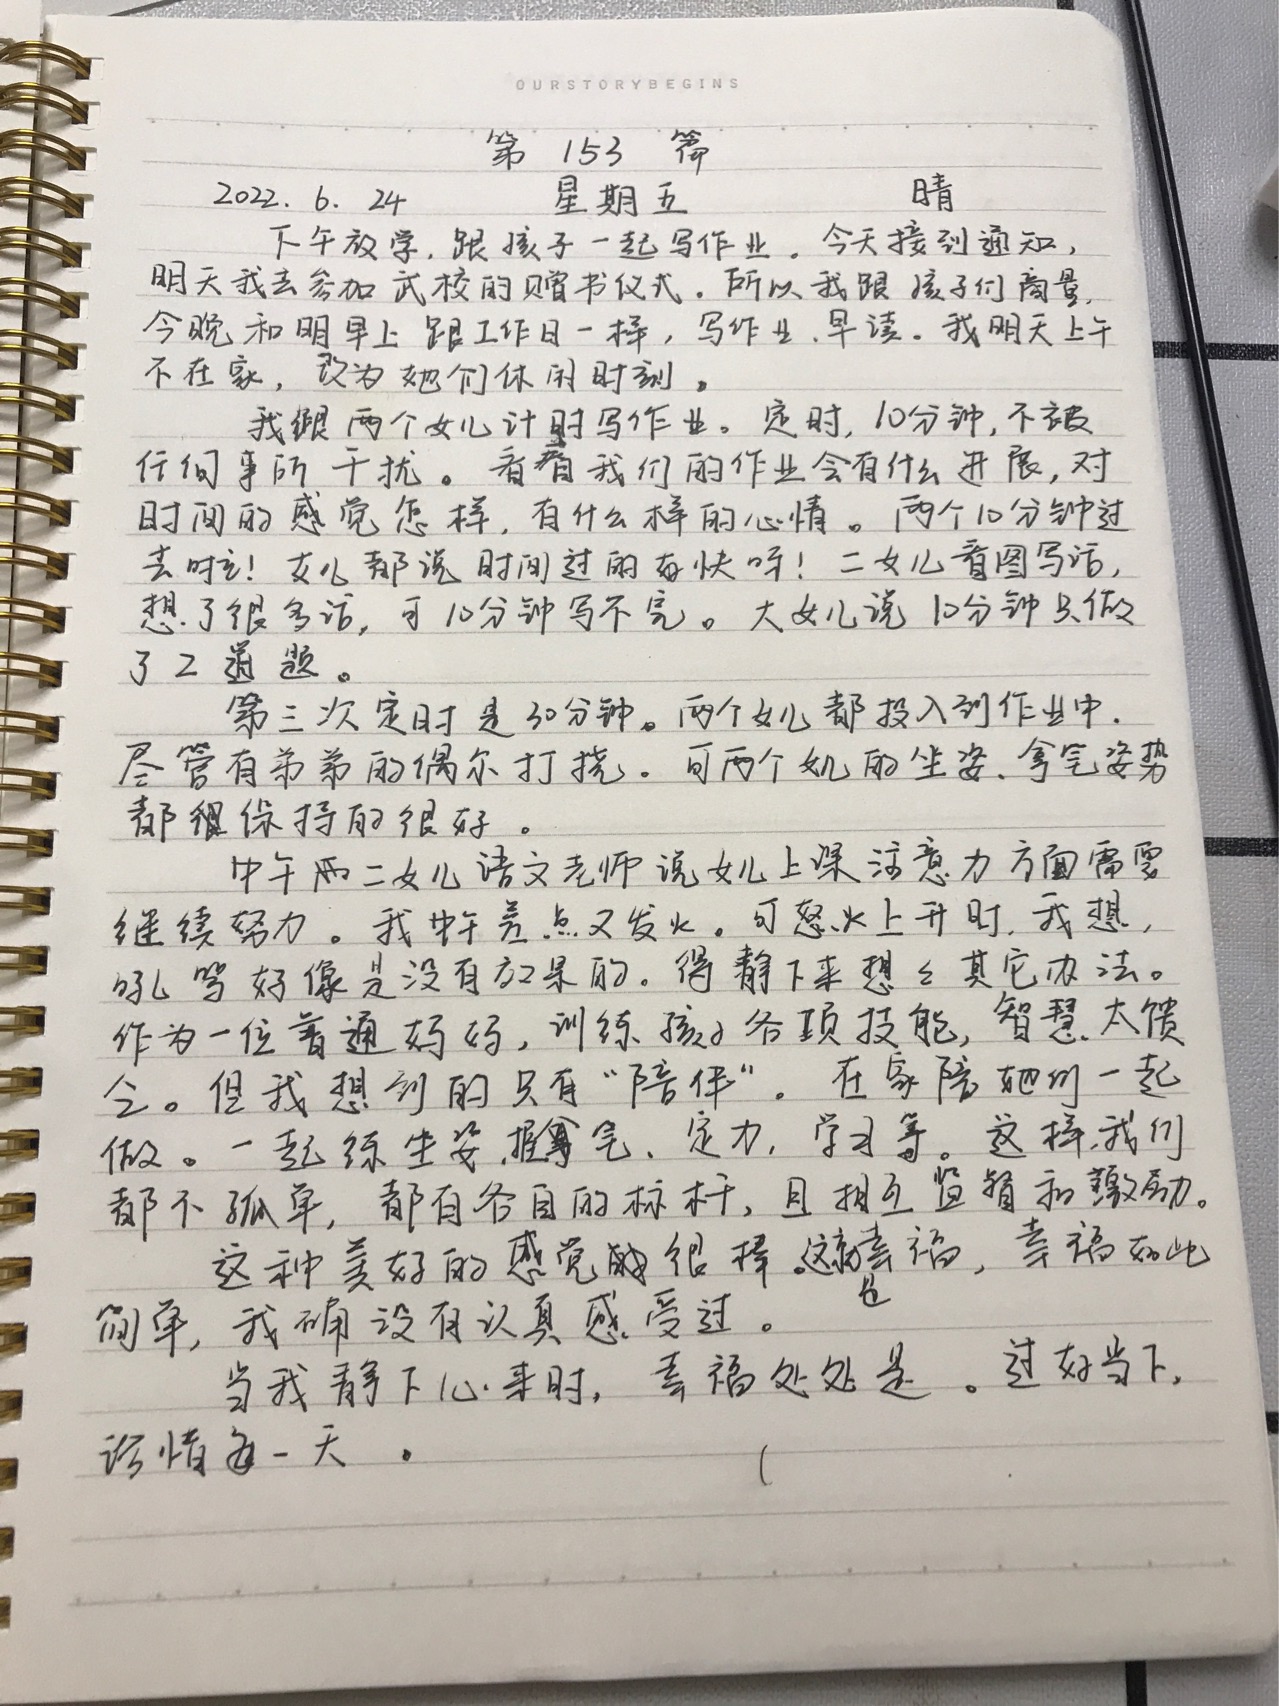 OURSTORYBEGINS
第 153 篇
2022.6.24 星期五 晴
下午放学,跟孩子一起写作业。今天接到通知,
明天我去参加武校的赠书仪式。所以我跟孩子们商量,
今晚和明早上跟工作日一样,写作业、早读。我明天上午
不在家,改为她们休闲时刻。
我跟两个女儿计时写作业。定时,10分钟,不被
任何事所干扰。看看我们的作业会有什么进展,对
时间的感觉怎样,有什么样的心情。两个10分钟过
去啦!女儿都说时间过的好快呀!二女儿看图写话,
想了很多话,可10分钟写不完。大女儿说10分钟只做
了2道题。
第三次定时是30分钟。两个女儿都投入到作业中.
尽管有弟弟的偶尔打扰。可两个女儿的坐姿、拿笔姿势
都保持的很好。
中午二女儿语文老师说女儿上课注意力方面需要
继续努力。我中午差点又发火。可怒火上升时,我想,
吼骂好像是没有效果的。得静下来想想其它办法。
作为一位普通妈妈,训练孩子各项技能,智慧太馈
乏。但我想到的只有“陪伴”。在家陪她们一起
做。一起练坐姿、握笔、定力,学习等。这样,我们
都不孤单,都有各自的标杆,且相互监督和激励。
这种美好的感觉很棒。这就是幸福,幸福如此
简单,我确没有认真感受过。
当我静下心来时,幸福处处是。过好当下,
珍惜每一天。